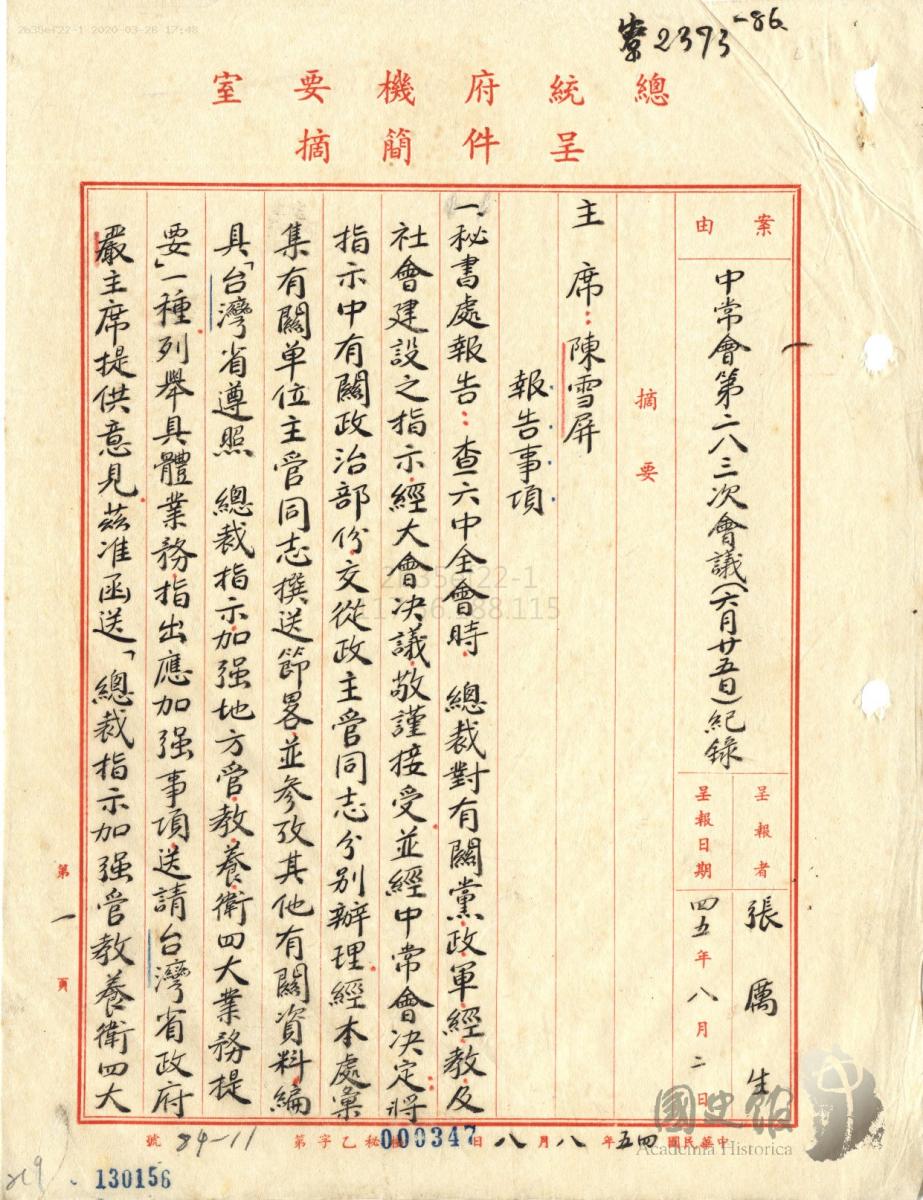 2b35ef22-1 2020-03-26 17:48
2393-86
總統府機要室
呈件簡摘
案由
中常會第二八三次會議(六月廿五日)紀錄
呈報者 張厲生
呈報日期 四五年八月二日
摘要
主席：陳雪屏
報告事項
一、秘書處報告：查六中全會時 總裁對有關黨政軍經教及
社會建設之指示經大會決議敬謹接受並經中常會決定將
指示中有關政治部份交從政主管同志分別辦理經本處彙
集有關单位主管同志撰送節畧並參攷其他有關資料編
具「台灣省遵照 總裁指示加强地方管教養衛四大業務提
要」一種列舉具體業務指出應加强事項送請台灣省政府
嚴主席提供意見茲准函送「總裁指示加强管教養衛四大
第一頁
中華民國四五年八月八日
秘乙字第84-11號
000347
130156
219
2b35ef22-1
國史館
Academia Historica